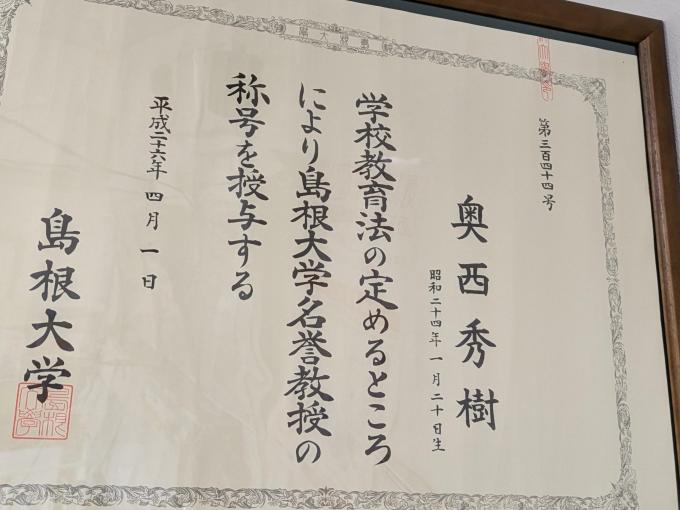 第三百四十四号
奥西秀樹
昭和二十四年一月二十日生
学校教育法の定めるところ
により島根大学名誉教授の
称号を授与する
平成二十六年四月一日
島根大学